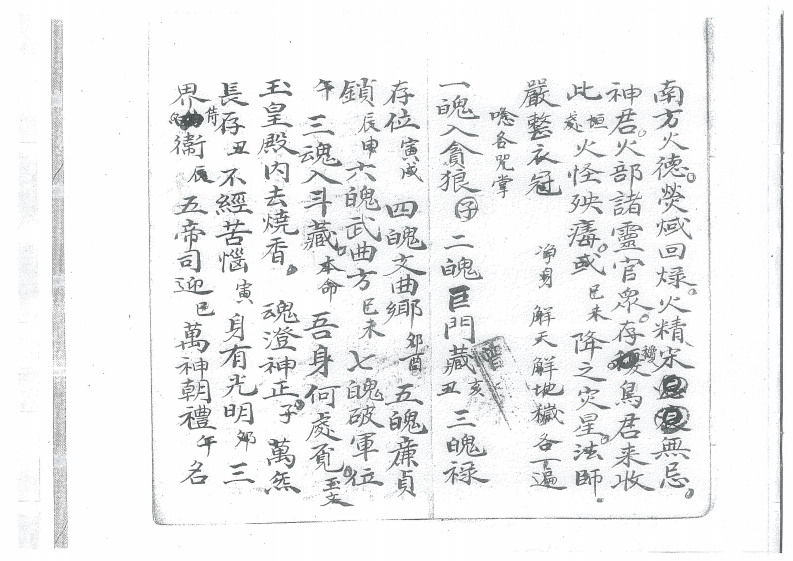 南方火德熒惑回祿火精宋無忌
神君火部諸靈官眾存鳥君來收
此火怪殃毒或巳未降之灾星法師
嚴整衣冠 淨身 解天解地穢各一遍
唸各咒掌
一魄入貪狼子 二魄巨門藏亥丑 三魄祿
存位寅戌 四魄文曲鄉卯酉 五魄廉貞
鎖辰申六魄武曲方巳未 七魄破軍位
午 三魂入斗藏本命 吾身何處覓玉文
玉皇殿內去燒香 魂澄神正子 萬炁
長存丑 不經苦惱寅 身有光明卯 三
界侍衛辰 五帝司迎巳 萬神朝禮午 名